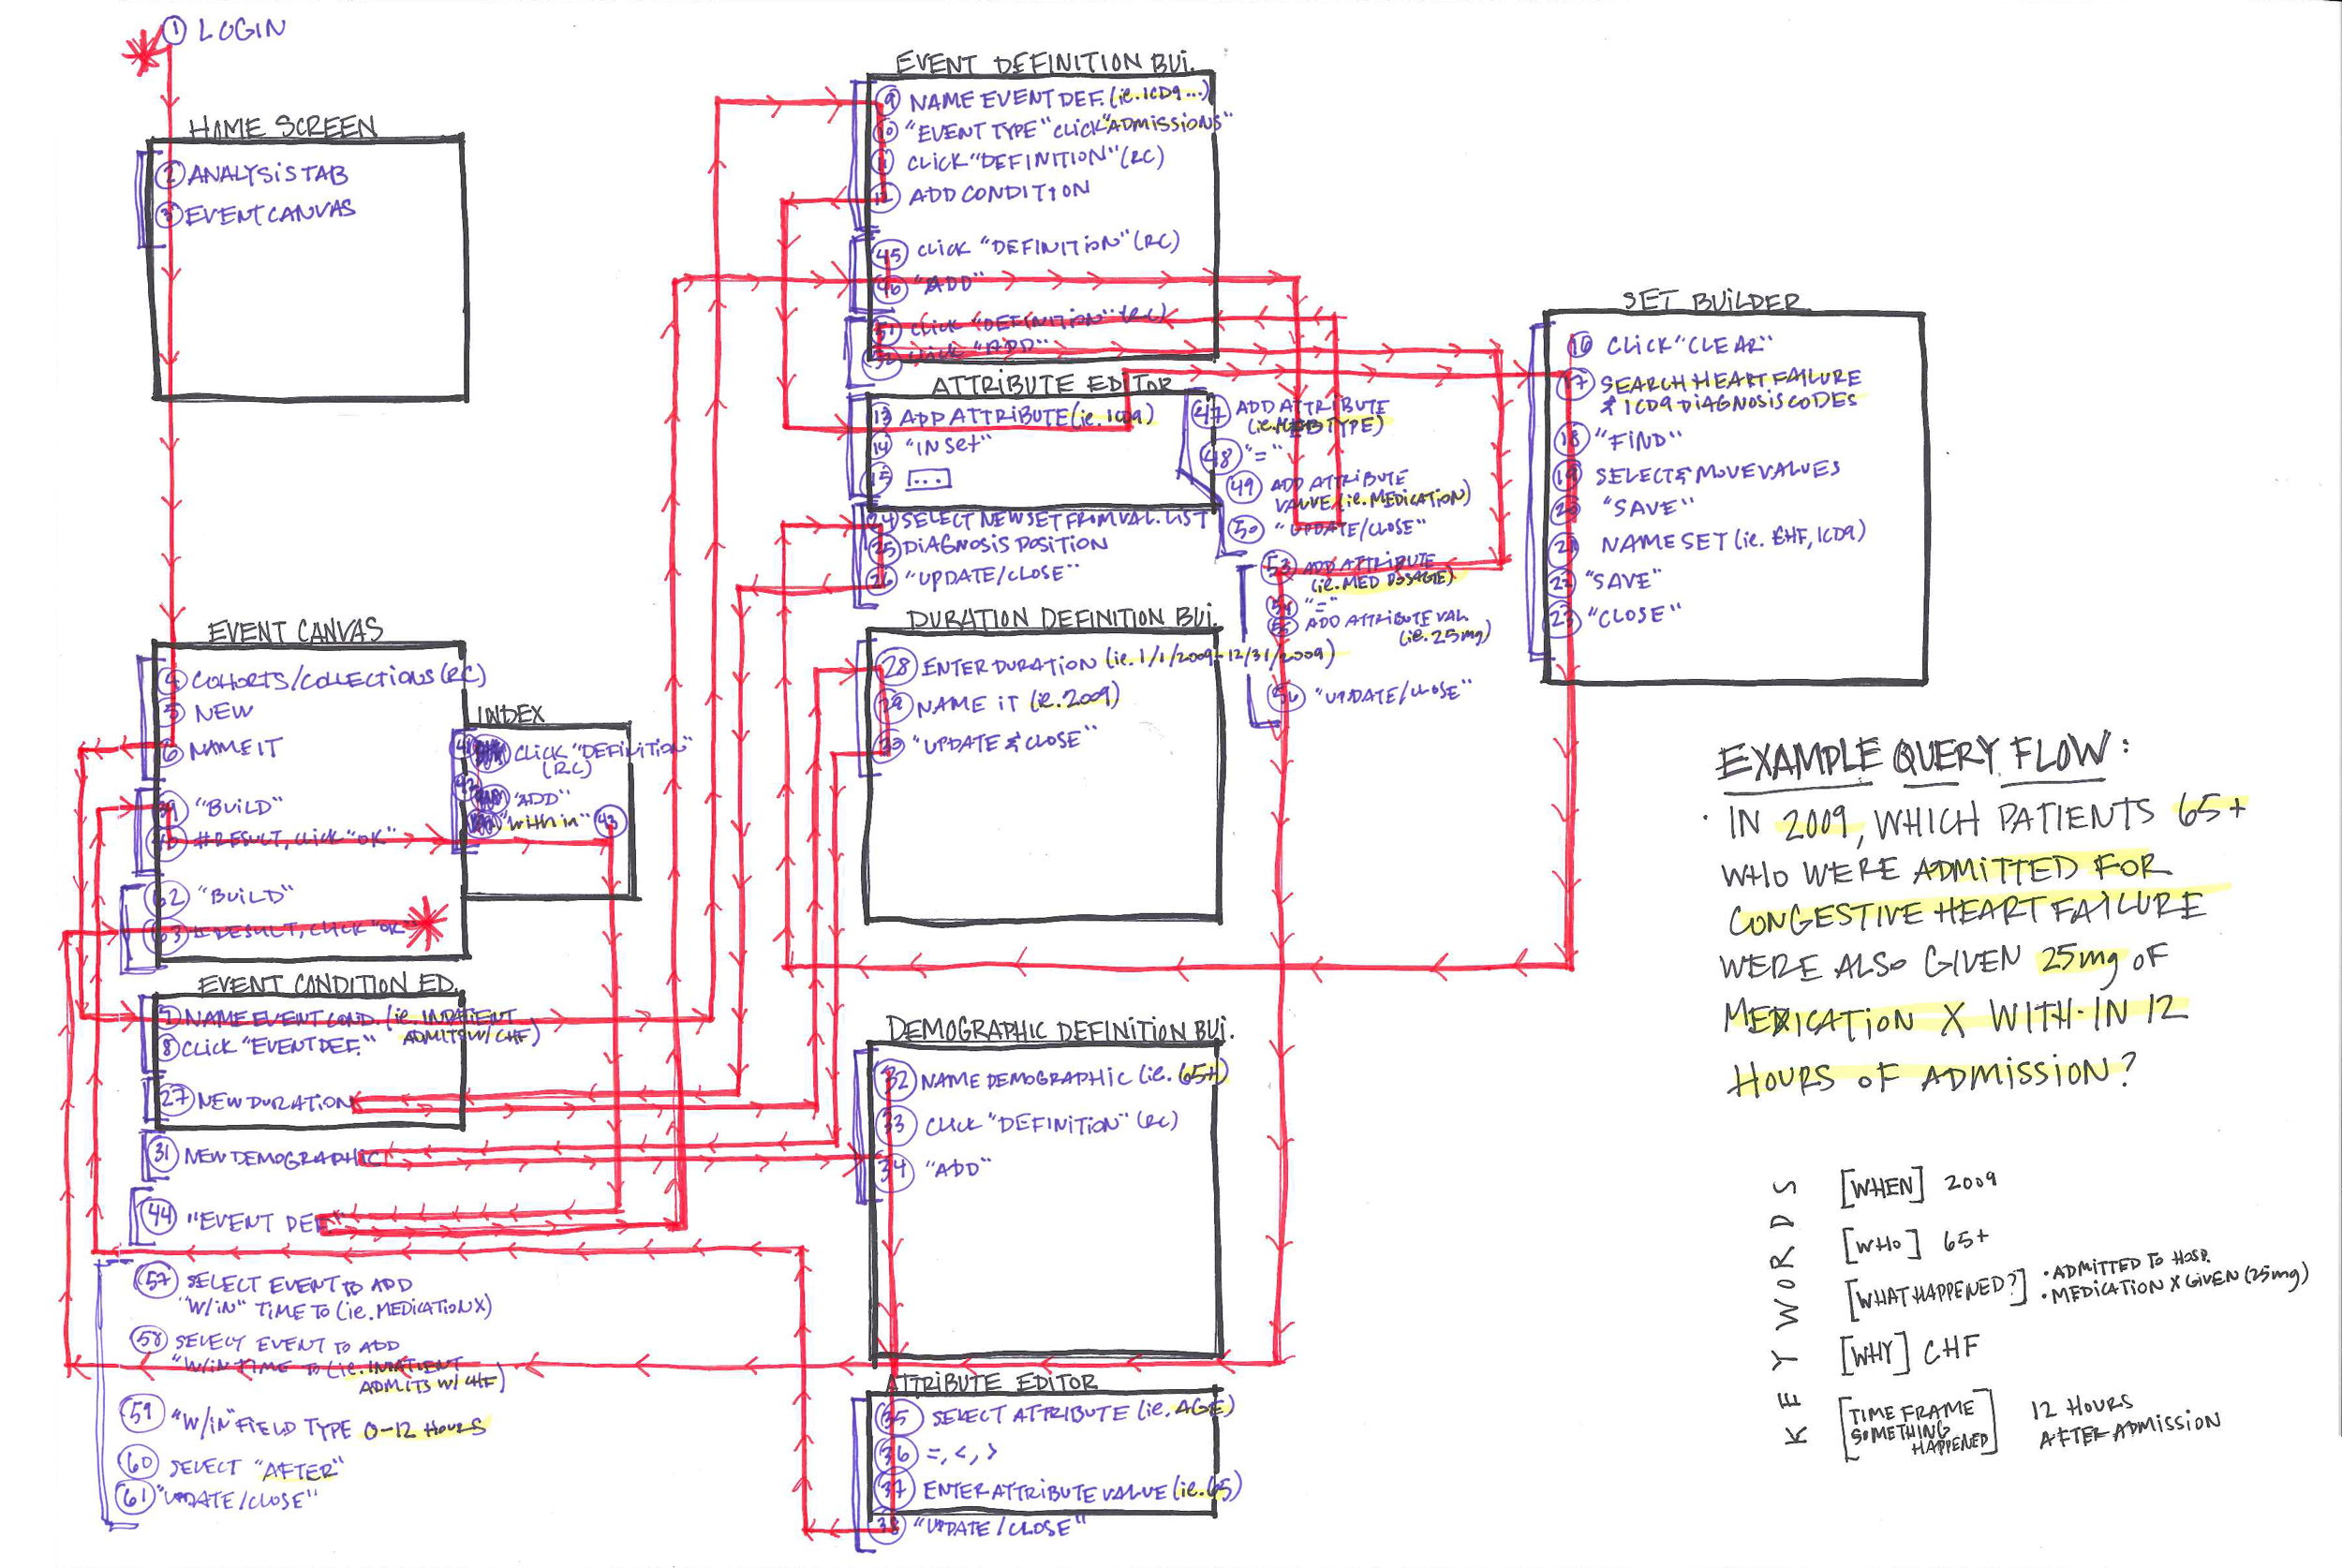 ① LOGIN
HOME SCREEN
② ANALYSIS TAB
③ EVENT CANVAS
EVENT CANVAS
④ COHORTS/COLLECTIONS (RC)
⑤ NEW
⑥ NAME IT
39 "BUILD"
40 # RESULT, CLICK "OK"
62 "BUILD"
63 # RESULT, CLICK "OK"
INDEX
41 CLICK "DEFINITION"
(RC)
42 "ADD"
"with in" 43
EVENT CONDITION ED.
7 NAME EVENT COND. (ie. INPATIENT
ADMITS W/ CHF)
8 CLICK "EVENT DEF."
27 NEW DURATION
31 NEW DEMOGRAPHIC
44 "EVENT DEF"
57 SELECT EVENT TO ADD
"W/IN" TIME TO (ie. MEDICATION X)
58 SELECT EVENT TO ADD
"W/IN TIME TO (ie. INPATIENT
ADMITS W/ CHF)
59 "W/IN" FIELD TYPE 0-12 HOURS
60 SELECT "AFTER"
61 "UPDATE/CLOSE"
EVENT DEFINITION BUI.
9 NAME EVENT DEF. (ie. ICD9 ...)
10 "EVENT TYPE" CLICK "ADMISSIONS"
11 CLICK "DEFINITION" (RC)
12 ADD CONDITION
45 CLICK "DEFINITION" (RC)
46 "ADD"
51 CLICK "DEFINITION" (RC)
52 CLICK "ADD"
ATTRIBUTE EDITOR
13 ADD ATTRIBUTE (ie. ICD9)
14 "IN SET"
15 ...
24 SELECT NEW SET FROM VAL. LIST
25 DIAGNOSIS POSITION
26 "UPDATE/CLOSE"
47 ADD ATTRIBUTE
(ie. MED TYPE)
48 "="
49 ADD ATTRIBUTE
VALUE (ie. MEDICATION)
50 "UPDATE/CLOSE"
53 ADD ATTRIBUTE
(ie. MED DOSAGE)
54 "="
55 ADD ATTRIBUTE VAL.
(ie. 25mg)
56 "UPDATE/CLOSE"
DURATION DEFINITION BUI.
28 ENTER DURATION (ie. 1/1/2009 - 12/31/2009)
29 NAME IT (ie. 2009)
30 "UPDATE & CLOSE"
DEMOGRAPHIC DEFINITION BUI.
32 NAME DEMOGRAPHIC (ie. 65+)
33 CLICK "DEFINITION" (RC)
34 "ADD"
ATTRIBUTE EDITOR
35 SELECT ATTRIBUTE (ie. AGE)
36 =, <, >
37 ENTER ATTRIBUTE VALUE (ie. 65)
38 "UPDATE/CLOSE"
SET BUILDER
16 CLICK "CLEAR"
17 SEARCH HEART FAILURE
& ICD9 DIAGNOSIS CODES
18 "FIND"
19 SELECT & MOVE VALUES
20 "SAVE"
21 NAME SET (ie. CHF, ICD9)
22 "SAVE"
23 "CLOSE"
EXAMPLE QUERY FLOW:
· IN 2009, WHICH PATIENTS 65+
WHO WERE ADMITTED FOR
CONGESTIVE HEART FAILURE
WERE ALSO GIVEN 25mg OF
MEDICATION X WITH-IN 12
HOURS OF ADMISSION?
KEY WORDS
[WHEN] 2009
[WHO] 65+
[WHAT HAPPENED?] · ADMITTED TO HOSP.
· MEDICATION X GIVEN (25mg)
[WHY] CHF
[TIME FRAME SOMETHING HAPPENED] 12 HOURS
AFTER ADMISSION